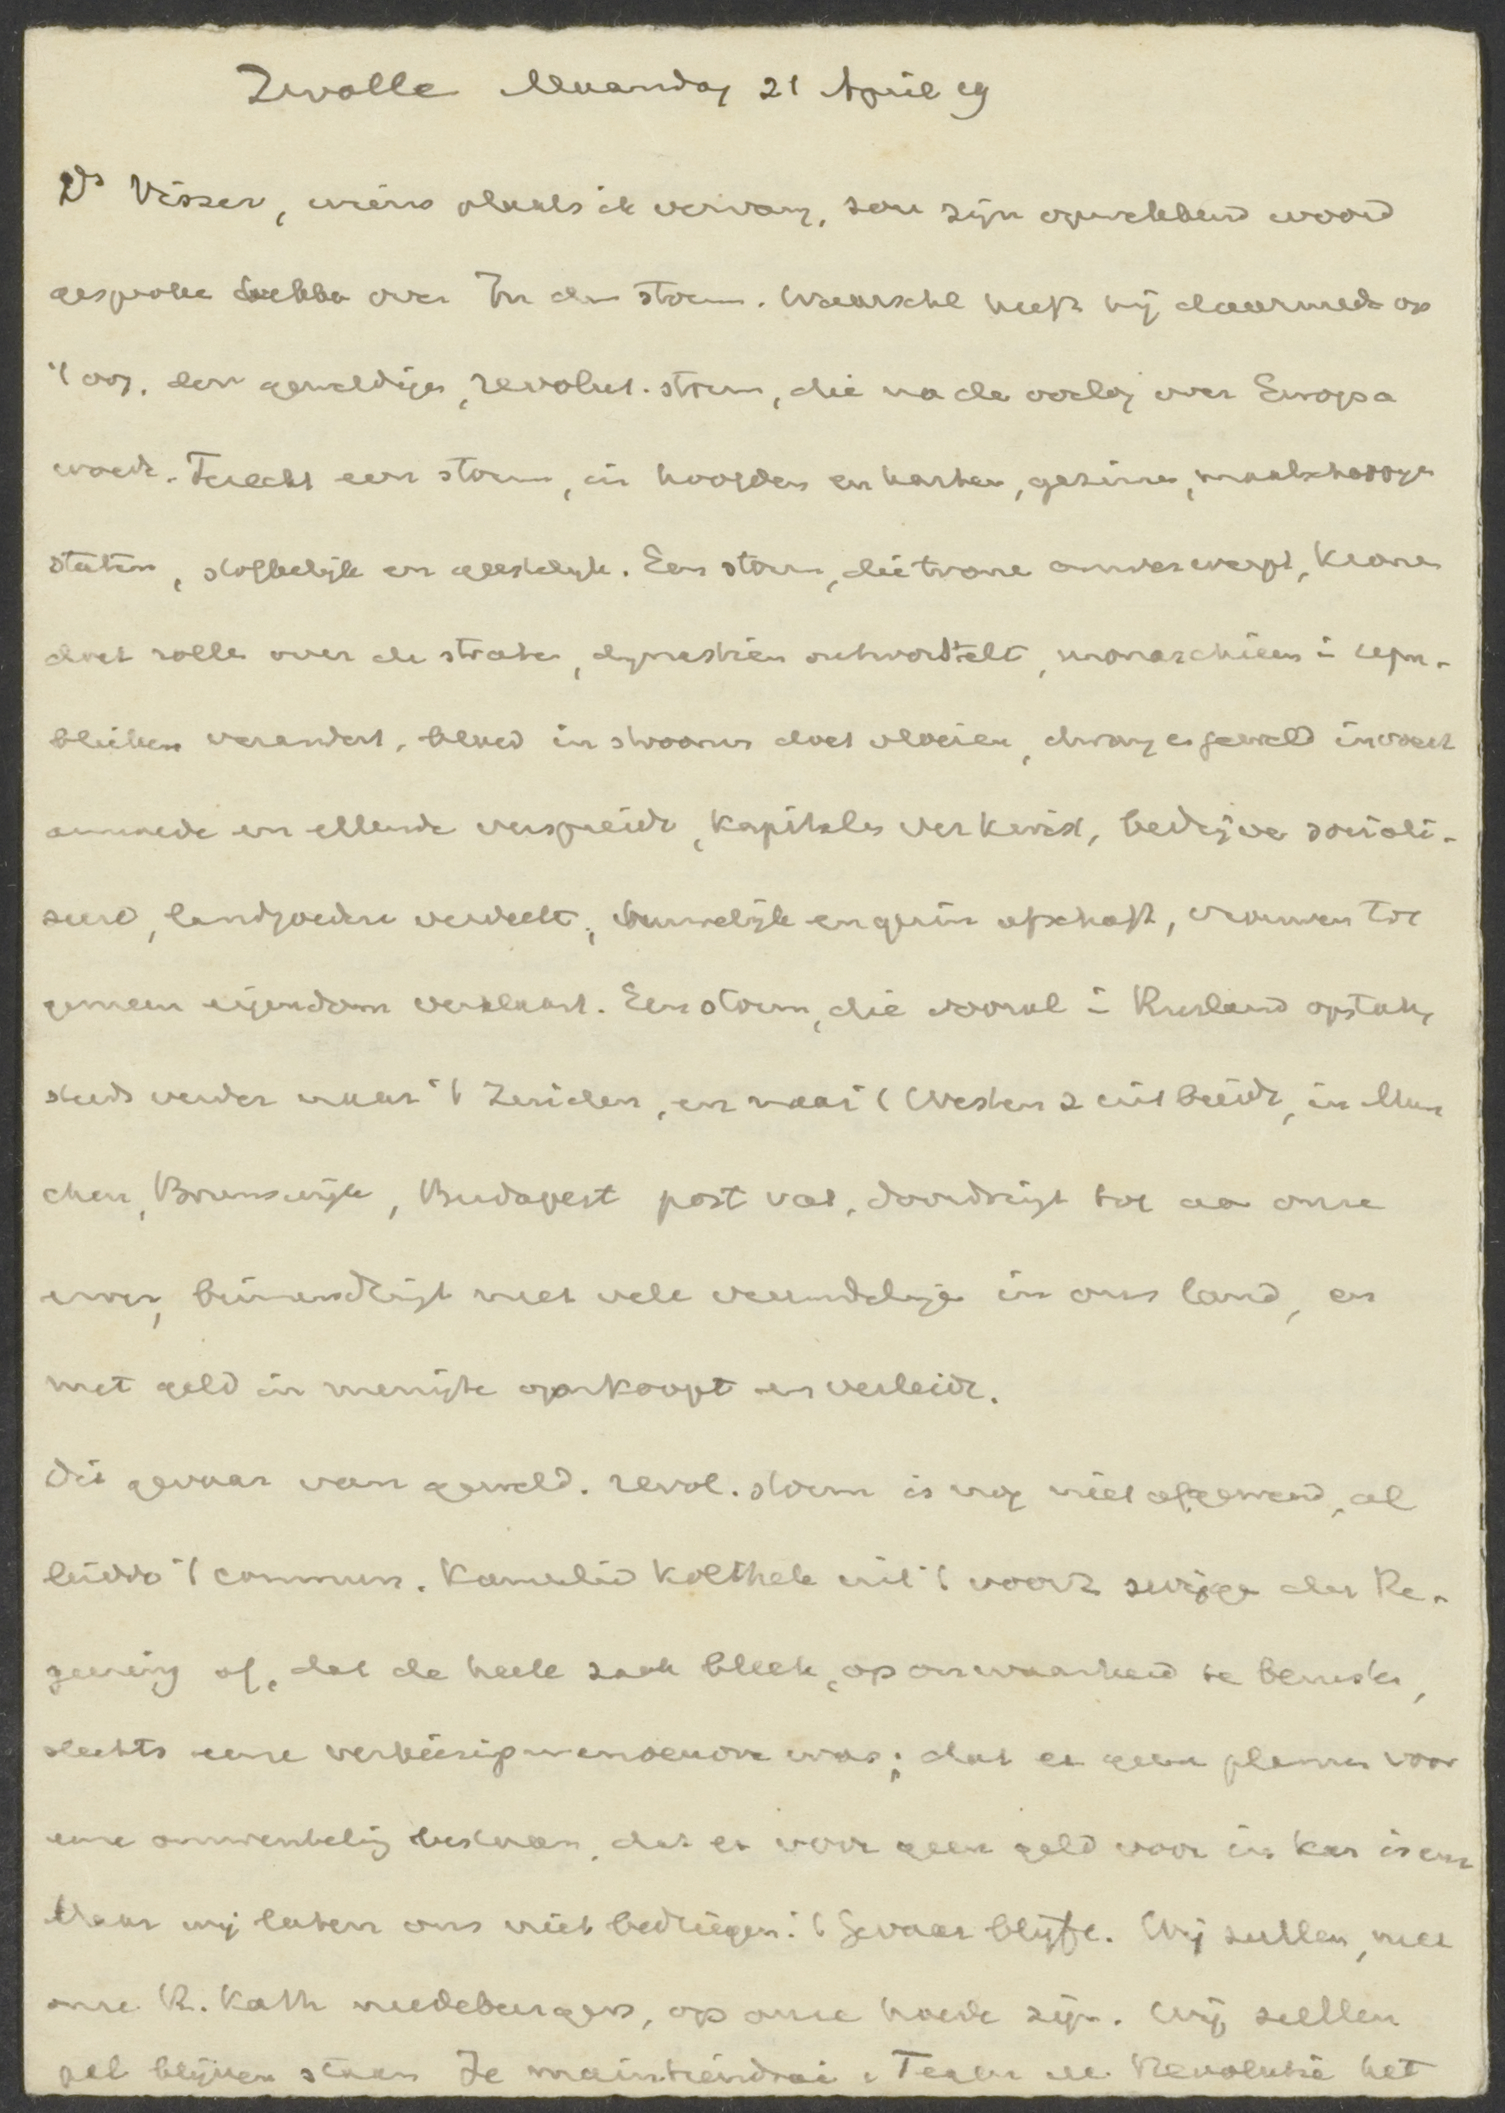 Zwolle Maandag 21 April 19
Ds Visser, wiens plaats ik vervang, zou zijn opwekkend woord
gesproke hebbe over In den storm. Waarschl heeft hij daarmede op
't oog, den geweldige, revolut. storm, die na de oorlog over Europa
woedt. Terecht een storm, in hoofden en harten, gezinne, maatschappye
staten, stoffelijk en geestelijk. Een storm, die trone omver werpt, kronen
doet rolle over de straten, dynastien ontwortelt, monarchieen i repu-
blieken verandert, bloed in stroomen doet vloeien, dwang en geweld invoert
armoede en ellende verspreidt, kapitalen verkwist, bedrijve sociali-
seert, landgoedere verdeelt, huwelijk en gezin afschaft, vrouwen tot
gemeen eigendom verklaart. Een storm, die vooral i Rusland opstak,
steeds verder naar 't Zuiden, en naar 't Westen z uitbreidt, in Mun
chen, Brunswijk, Budapest post vat, doordringt tot aa onze
binnendringt met vele vreemdelinge in ons land, en
met geld in menigte omkoopt en verleidt.
Dit gevaar van geweld. revol. storm is nog niet afgewend, al
leidde 't commun. Kamerlid Kolthek uit 't voortz zwijge der Re-
geering af, dat de heele zaak bleek, op onwaarheid te beruste,
slechts eene was; dat er geen planne voor
eene omwenteling bestaan, dat er voor geen geld voor in kas is enz
Maar wij laten ons niet bedriegen: 't gevaar blijft. Wij zullen, met
onze R. Kath medeburgers, op onze hoede zijn. Wij zullen
pal blijven staan Je maintiendrai. Tegen de Revolutie het